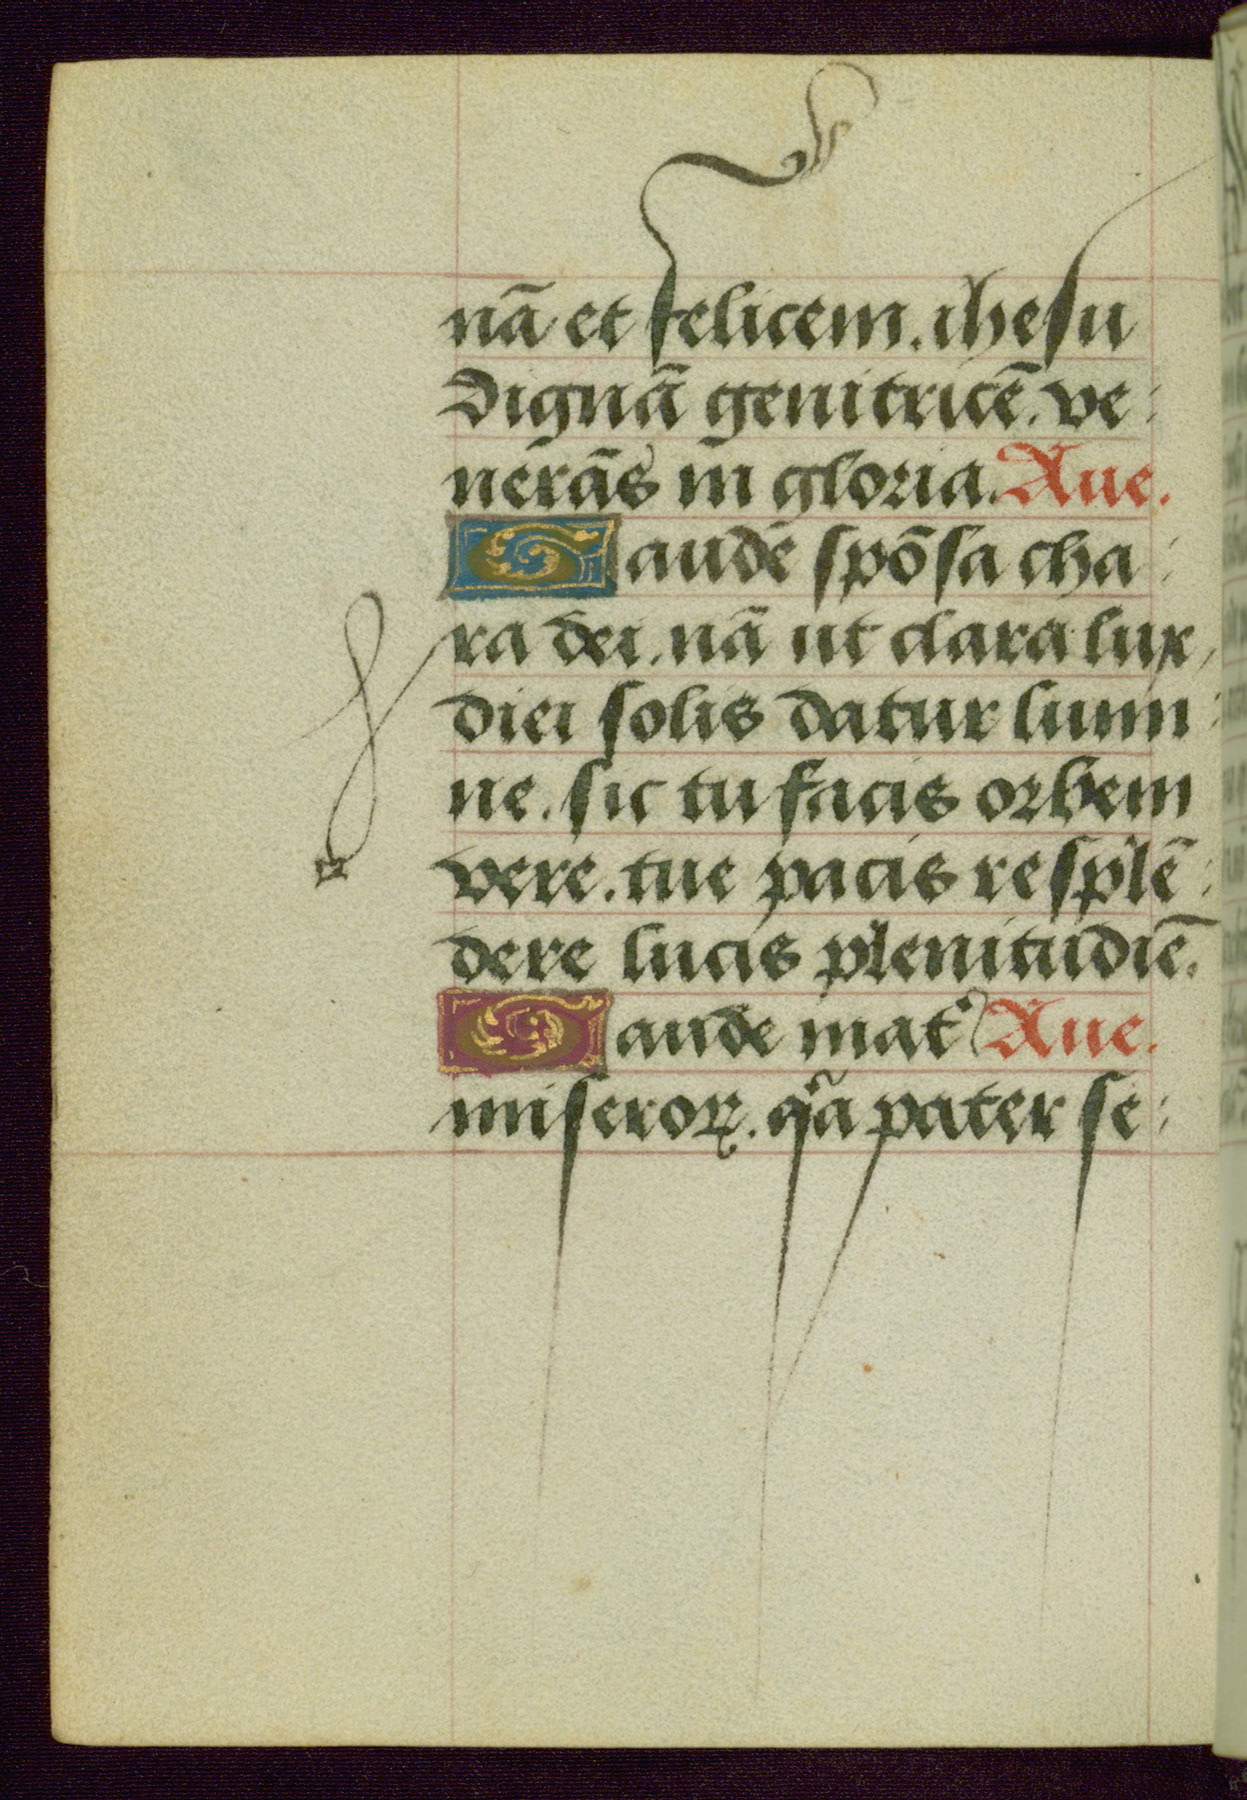 nā et felicem. ihesu
dignā genitricē. ve:
nerās in gloria. Aue.
Gaude spōsa cha:
ra dei. nā ut clara lux
diei solis datur lumi:
ne. sic tu facis orbem
vere. tue pacis resplē:
dere lucis plenitudiē.
Gaude mat͛ Aue.
miseroꝝ. qꝛa pater se: